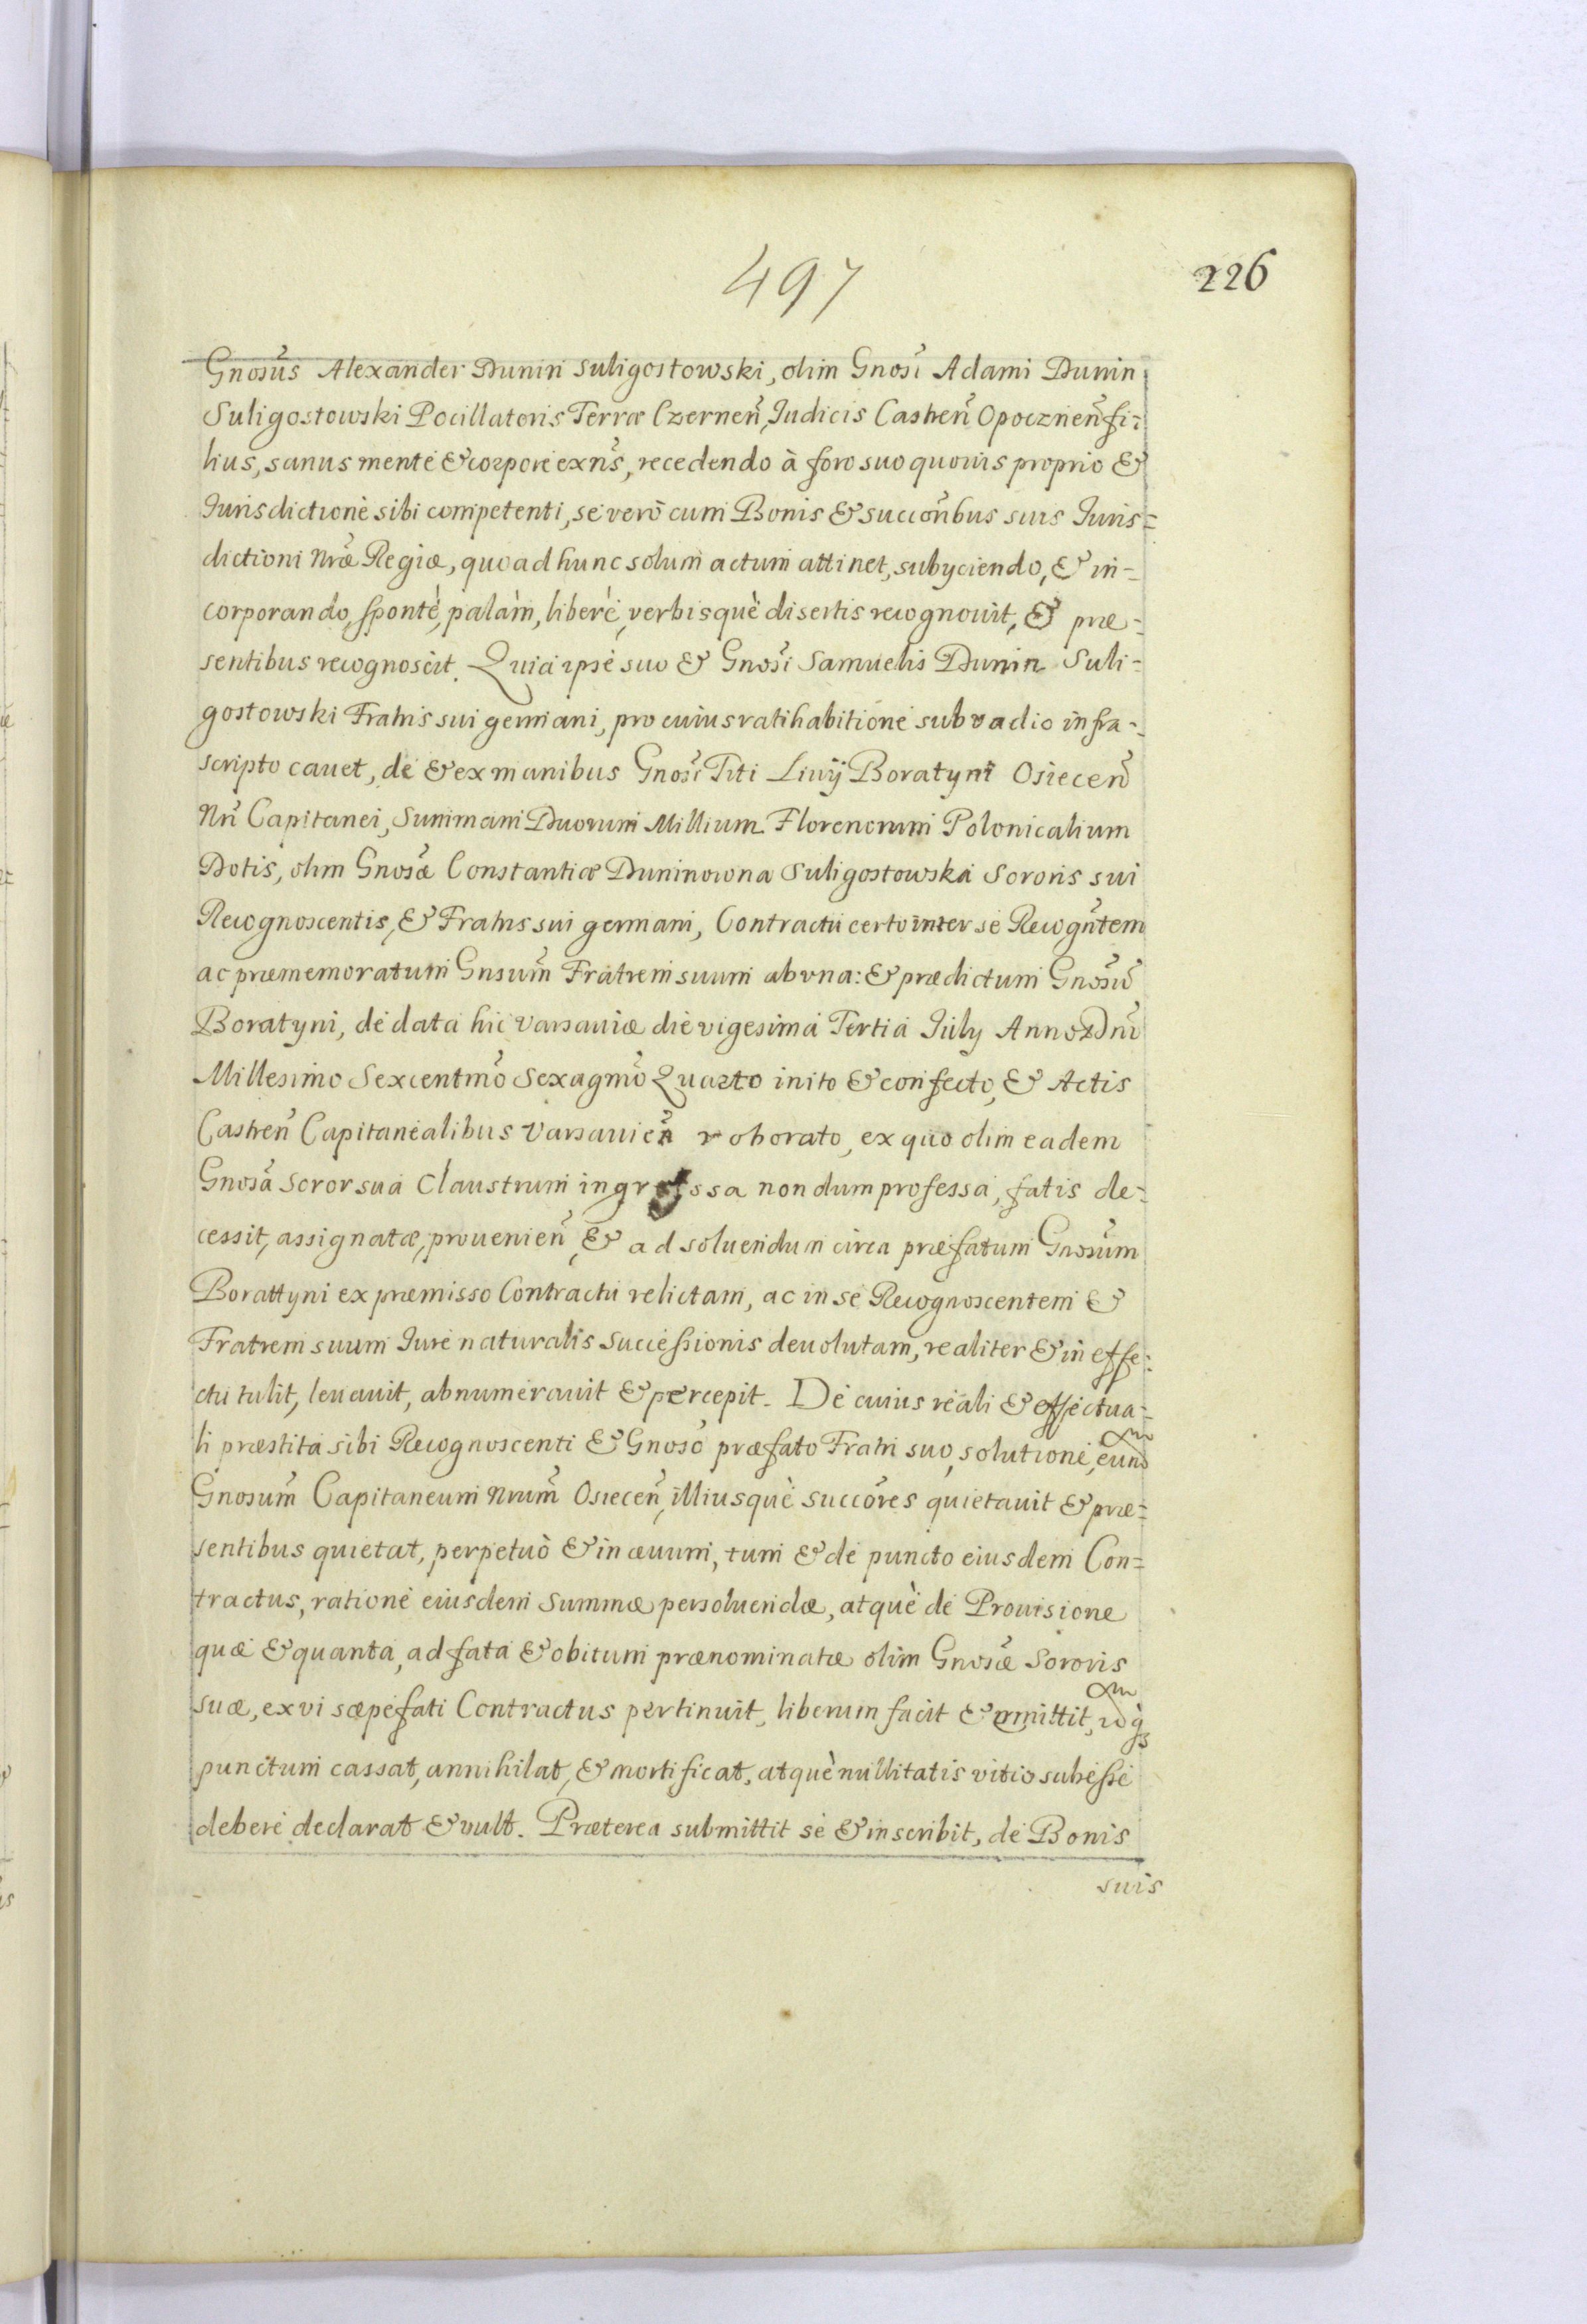 497
226
Gnosus Alexander Dunin Suligostowski, olim Gnosi Adami Dunin
Suligostowski Pocillatoris Terræ Czernen, Iudicis Castren Opocznen fi=
lius, sanus mente & corpore exns, recedendo à foro suo quovis proprio &
Iurisdictione sibi competenti, se verò cum Bonis & succonbus suis Iuris=
dictioni Nræ Regiæ, quo ad hunc solum actum attinet, subyciendo, & in=
corporando, sponte, palàm, liberè, verbisquè disertis recognouit, & præ=
sentibus recognoscit. Quia ipse suo & Gnosi Samuelis Dunin Suli=
gostowski Fratris sui germani, pro cuius ratihabitione sub vadio infra=
scripto cauet, de & ex manibus Gnosi Titi Liuij Boratyni Osiecen
Nri Capitanei, Summam Duorum Millium Florenorum Polonicalium
Dotis, olim Gnosæ Constantiæ Duninowna Suligostowska Sororis sui
Recognoscentis, & Fratris sui germani, Contractu certo inter se Recogntem
ac præmemoratum Gnsum Fratrem suum ab vna: & prædictum Gnosu
Boratyni, de data hic Varsauiæ die vigesima Tertia Iuly Anno Dni
Millesimo Sexcentmo Sexagmo Quarto inito & confecto, & Actis
Castren Capitanealibus Varsauien roborato, ex quo olim eadem
Gnosa Soror sua Claustrum ingressa nondum professa, fatis de=
cessit, assignatæ, prouenien, & ad soluendum circa præfatum Gnosum
Borattyni ex præmisso Contractu relictam, ac in se Recognoscentem &
Fratrem suum Iure naturalis successionis deuolutam, realiter & in effe=
ctu tulit, leuauit, abnumerauit & percepit. De cuius reali & effectua=
li præstita sibi Recognoscenti & Gnoso præfato Fratri suo, solutione, eund
Gnosum Capitaneum Nrum Osiecen, illiusquè succores quietauit & præ=
sentibus quietat, perpetuò & in æuum, tum & de puncto eiusdem Con=
tractus, ratione eiusdem Summæ persoluendæ, atquè de Prouisione
quæ & quanta, ad fata & obitum prænominatæ olim Gnosæ Sororis
suæ, ex vi sæpefati Contractus pertinuit, liberum facit &
punctum cassat, annihilat, & mortificat, atquè nullitatis vitio subesse
debere declarat & vult. Præterea submittit se & inscribit, de Bonis
suis